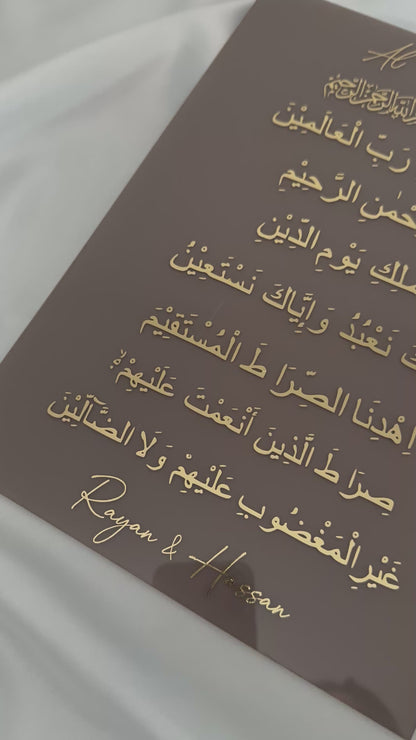 Al
رَبِّ الْعَالَمِيْنَ
الرَّحِيْمِ
يَوْمِ الدِّيْنِ
نَعْبُدُ وَإِيَّاكَ نَسْتَعِيْنُ
اِهْدِنَا الصِّرَاطَ الْمُسْتَقِيْمَ
صِرَاطَ الَّذِينَ أَنْعَمْتَ عَلَيْهِمْ
غَيْرِ الْمَغْضُوبِ عَلَيْهِمْ وَلَا الضَّآلِّيْنَ
Rayan & Hassan